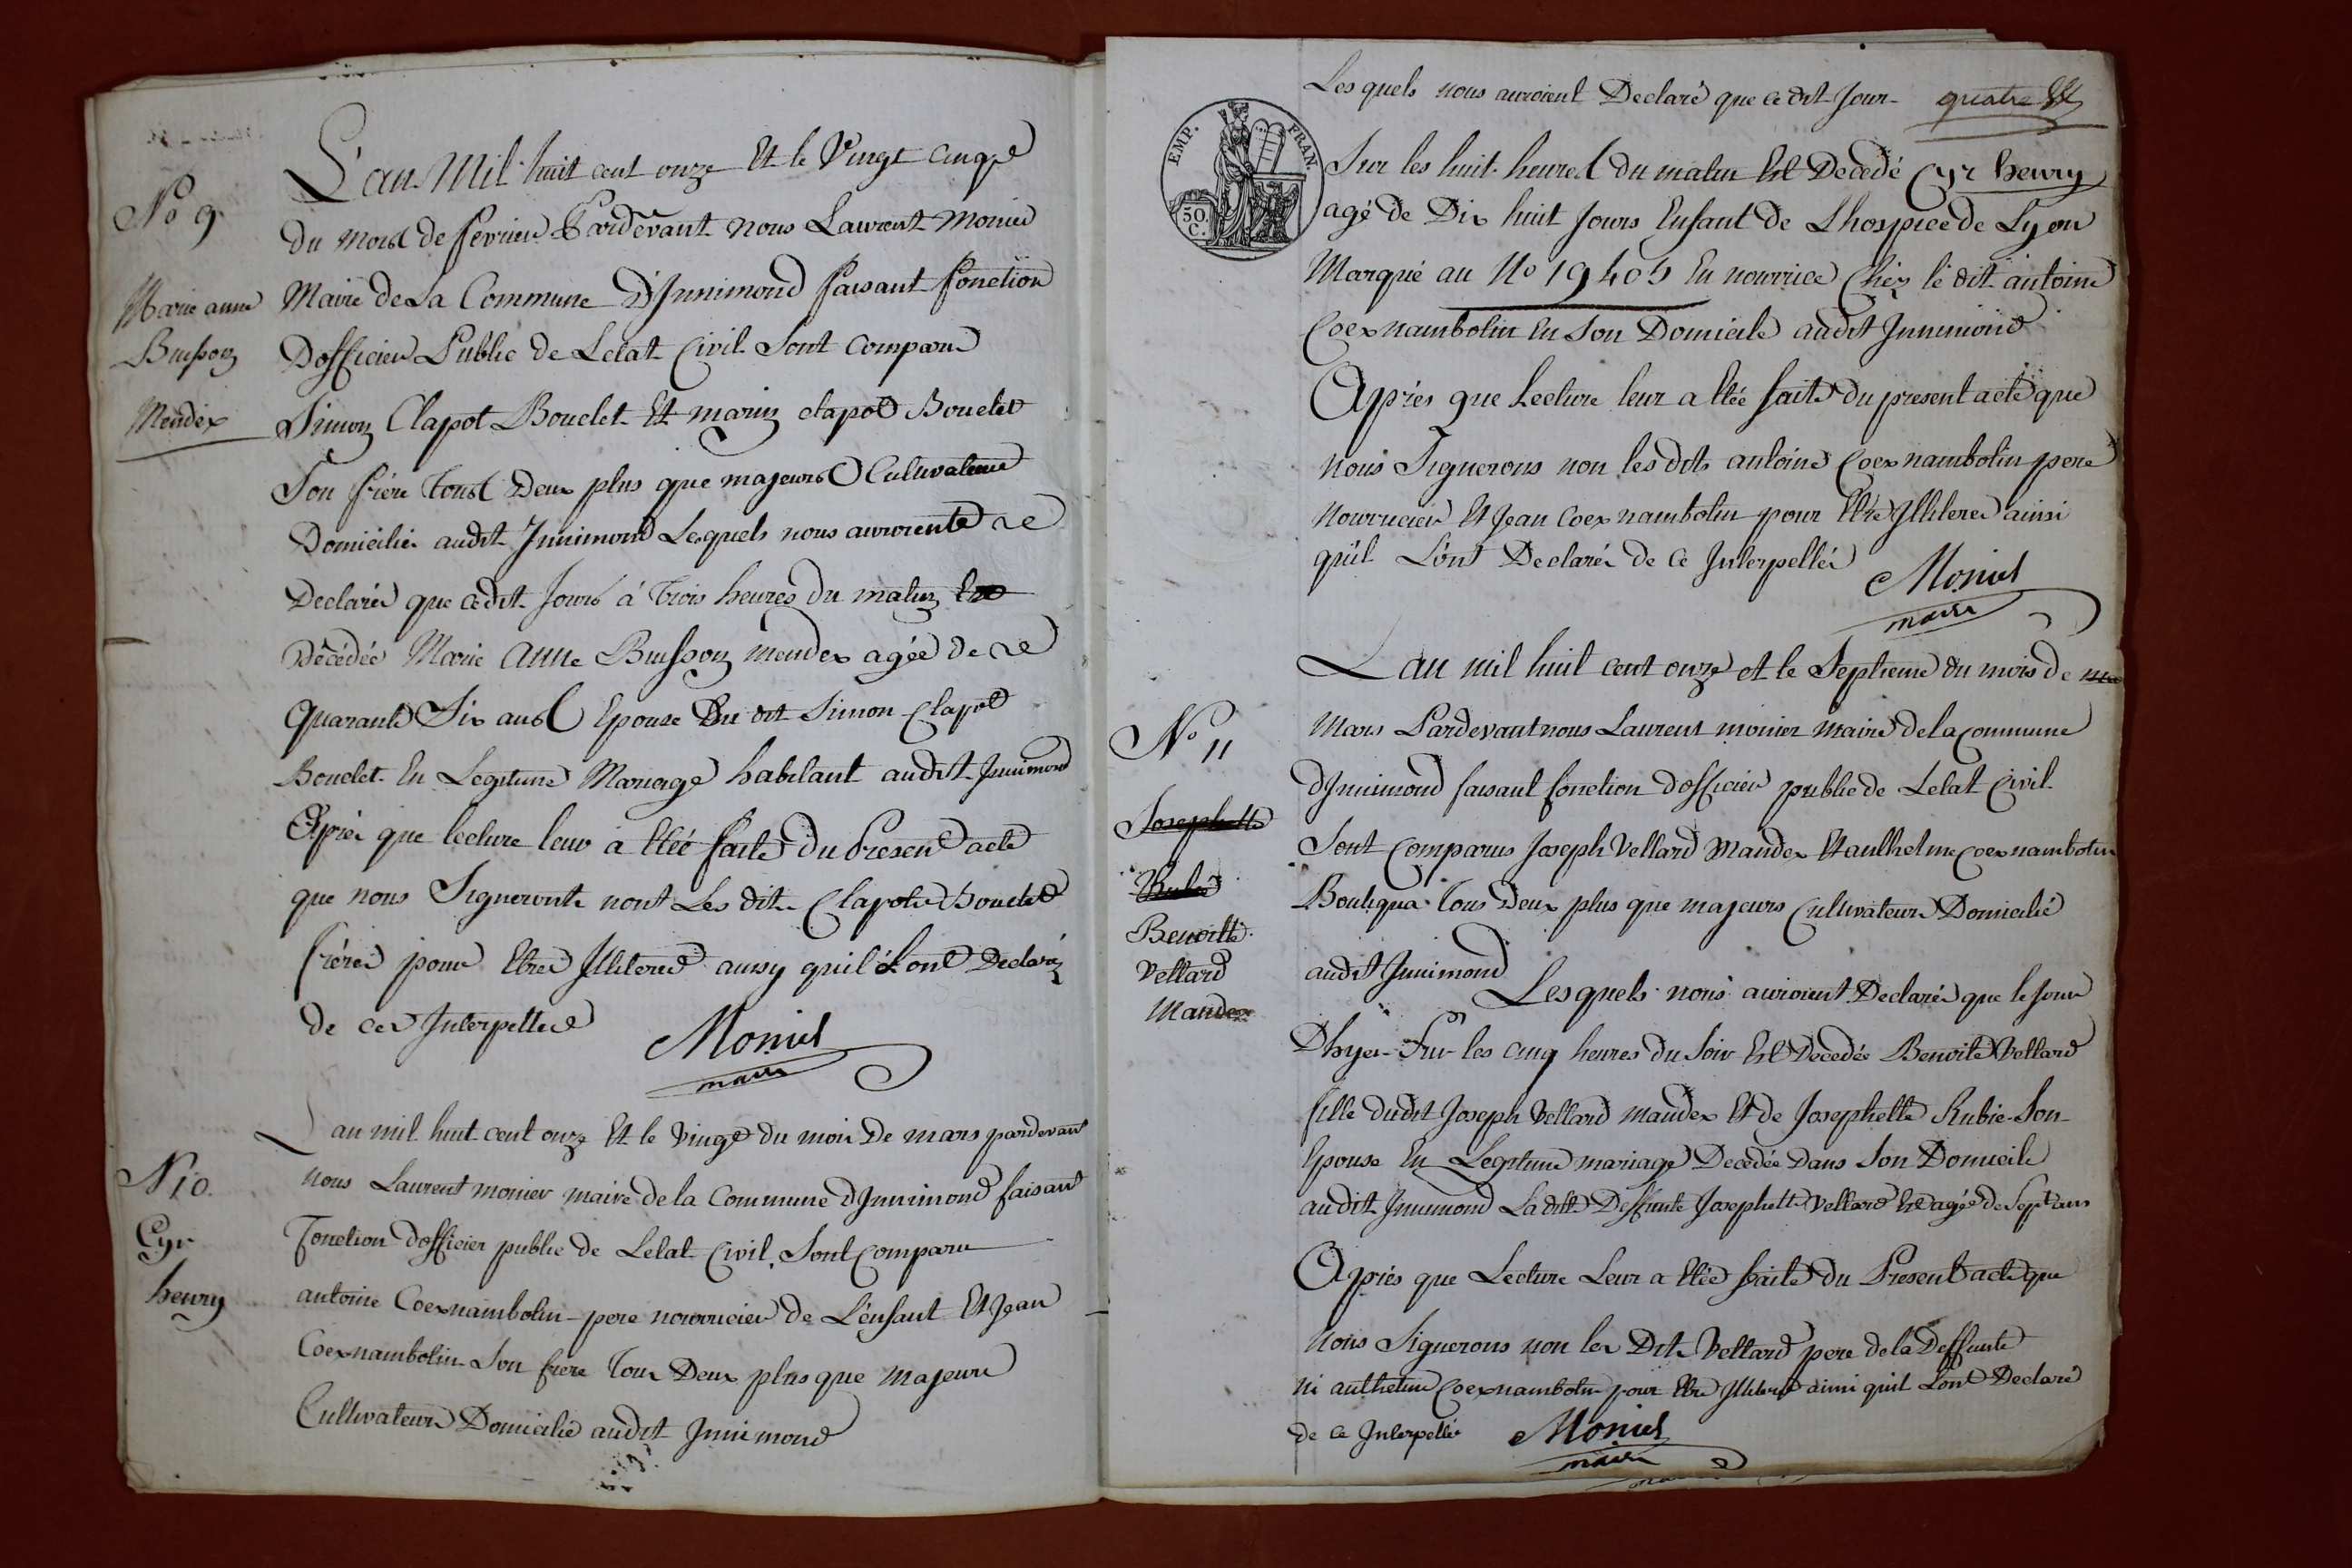 L'an Mil huit cent onze Et le Vingt cinq
du mois de fevrier Pardevant nous Laurent Monier
No 9
Maire de La Commune D'Innimond faisant fonction
Marie anne
Buisson
Mendex
Dofficier Public de Letat Civil Sont comparu
Simon Clapot Bouclet Et marin clapot Bouclet
Son frere tous Deux plus que majeurs Cultivateur
Domicilié audit Innimond Lesquels nous auroient
Declarés que cedit Jour à trois heures du matin Est
Décédée Marie Anne Buisson mendex agée de
Quarante Six ans Epouse Du dit Simon Clapot
Bouclet En Legitime Mariage habitant audit Innimond
Après que lecture leur a Etée faite du Present acte
que nous Signeront nont Les dits Clapot Bouclet
frères pour Etre Illiteré aussy quil Lont Declaré
de ce Interpellee
Monier
maire
Lan mil huit cent onze Et le vingt du mois De mars pardevant
N 10.
Cyr
henry
nous Laurent monier maire de la Commune dInnimond faisant
fonction dofficier public de Letat Civil, Sont Comparu
antoine Coexnambotin pere nourricier de L'énfant Et Jean
Coexnambotin Son frere Tous Deux plus que majeurs
Cultivateurs Domicilié audit Innimond
Les quels nous auroient Declaré que ce dit Jour
quatre
EMP. FRAN.
50. C.
Sur les huit heures du matin Est Decedé Cyr henry
agé de Dix huit Jours Enfant de Lhospice de Lyon
Marqué au No 19405 En nourrice Chéz le dit antoine
Coexnambotin En Son Domicile audit Innimond
Après que Lecture leur a Etée faite du present acte que
nous Signerons non les dits antoine Coexnambotin pere
nourricier Et Jean Coexnambotin pour Etre Illiteré ainsi
quil L'ont Declarés de ce Interpellés
Monier
maire
Lan mil huit cent onze et le Septieme du mois de
Mars Pardevant nous Laurent monier maire de la Commune
No 11
Josephette
Rubié
Benoitte
Vettard
Mandex
dInnimond faisant fonction dofficier public de Letat Civil
Sont Comparus Joseph Vettard Mandex Et anthelme Coexnambotin
Boutiqua Tous Deux plus que majeurs Cultivateurs Domicilié
audit Innimond
Lesquels nous auroient Declarés que le Jour
Dhyer Sur les cinq heures du Soir Est Decedée Benoite Vettard
fille dudit Joseph Vettard mandex Et de Josephette Rubie Son
Epouse En Legitime mariage Decedée Dans Son Domicile
audit Innimond Ladite Deffunte Josephette Vettard Est agée de Sept ans
Après que Lecture Leur a Etée faite du Present acte que
Nous Signerons non les Dits Vettard pere de la Deffunte
ni anthelme Coexnambotin pour Etre Illiteré ainsi quil Lont Declaré
de ce Interpellé
Monier
maire